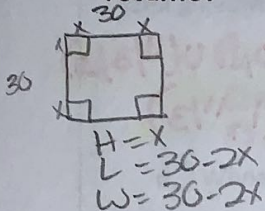 30
x x
x
30
x
H = x
L = 30-2x
W = 30-2x